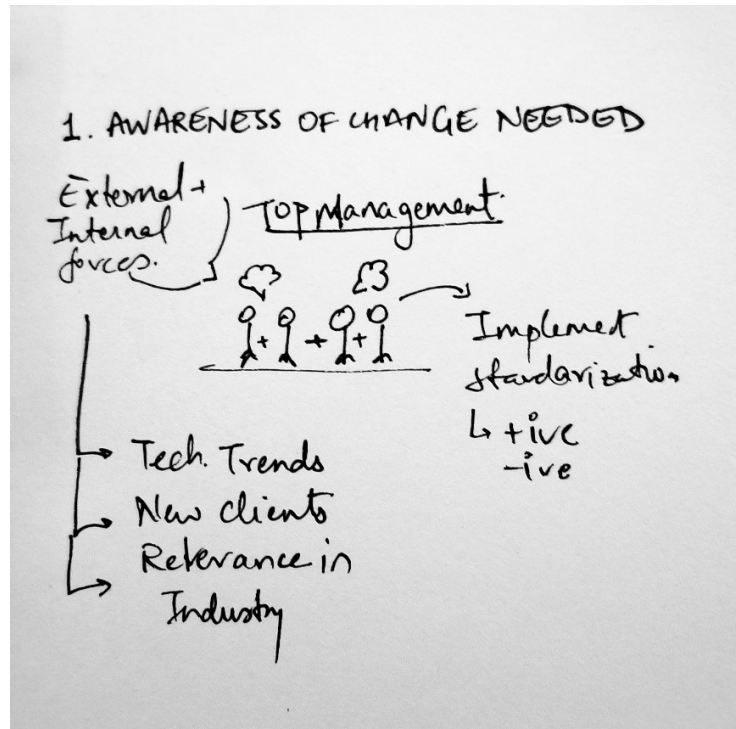 1. AWARENESS OF CHANGE NEEDED
External +
Internal
forces.
TOP Management.
+ + +
Implement
standarization
↳ +ive
-ive
Tech. Trends
New clients
Relevance in
Industry